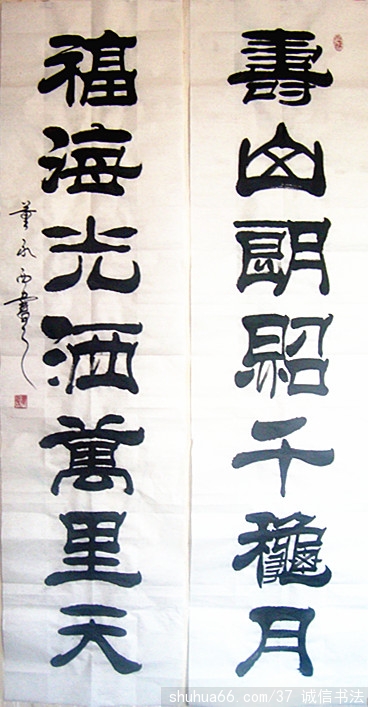 壽山朗照千龝月
福海光洒萬里天
董永西書
shuhua66.com/37 诚信书法